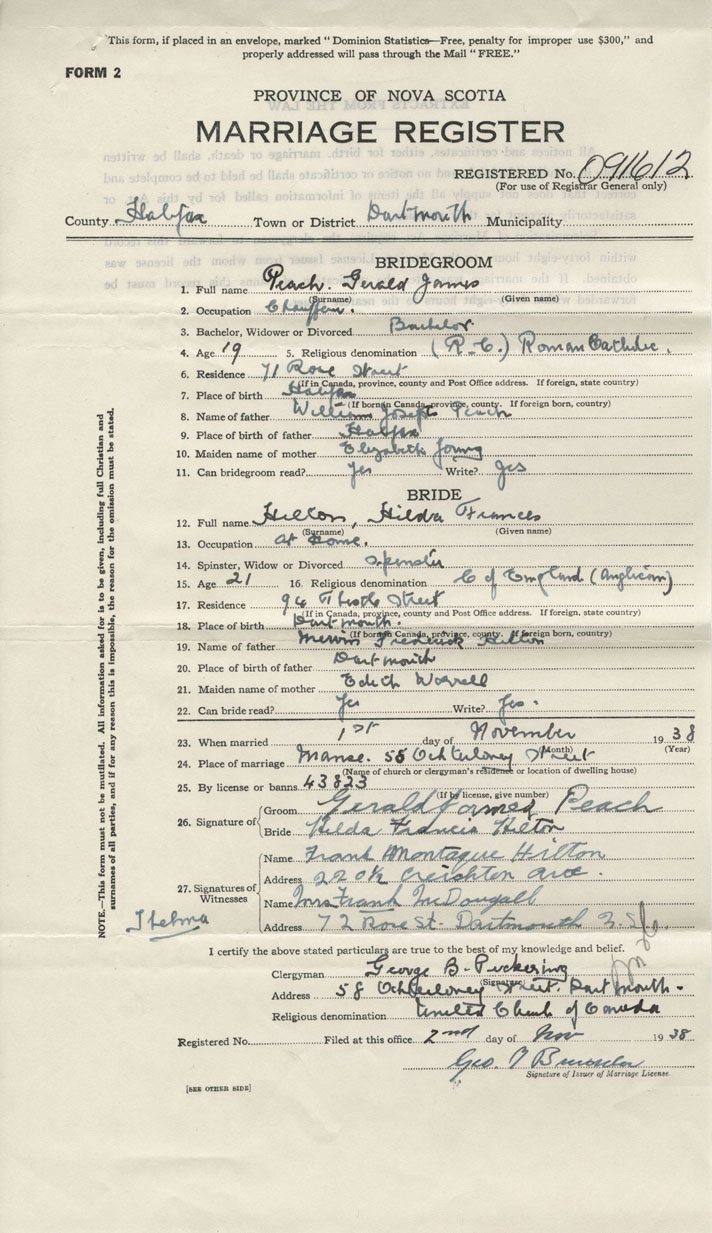 This form, if placed in an envelope, marked "Dominion Statistics—Free, penalty for improper use $300," and
properly addressed will pass through the Mail "FREE."
FORM 2
PROVINCE OF NOVA SCOTIA
MARRIAGE REGISTER
REGISTERED No. 091612
(For use of Registrar General only)
County Halifax Town or District Dartmouth Municipality
BRIDEGROOM
1. Full name Peach. Gerald James
(Surname) (Given name)
2. Occupation Chauffeur.
3. Bachelor, Widower or Divorced Bachelor
4. Age 19 5. Religious denomination (R.C.) Roman Catholic.
6. Residence 71 Rose Street
(If in Canada, province, county and Post Office address. If foreign, state country)
7. Place of birth Halifax
(If born in Canada, province, county. If foreign born, country)
8. Name of father William Joseph Peach
9. Place of birth of father Halifax
10. Maiden name of mother Elizabeth Young
11. Can bridegroom read? Yes Write? Yes
BRIDE
12. Full name Hilton, Hilda Frances
(Surname) (Given name)
13. Occupation at Home.
14. Spinster, Widow or Divorced Spinster
15. Age 21 16. Religious denomination C of England (Anglican)
17. Residence 96 Thistle Street
(If in Canada, province, county and Post Office address. If foreign, state country)
18. Place of birth Dartmouth.
(If born in Canada, province, county. If foreign born, country)
19. Name of father Frederick Hilton
20. Place of birth of father Dartmouth
21. Maiden name of mother Edith Worrell
22. Can bride read? Yes Write? Yes.
23. When married 1st day of November 1938
(Month) (Year)
24. Place of marriage Manse. 58 Ochterloney Street
(Name of church or clergyman's residence or location of dwelling house)
25. By license or banns 43823
(If by license, give number)
26. Signature of
Groom Gerald James Peach
Bride Hilda Francis Hilton
27. Signatures of Witnesses
Name Frank Montague Hilton
Address 220½ Creighton ave.
Name Mrs Frank McDougall
Address 72 Rose St. Dartmouth N.S.
Thelma
I certify the above stated particulars are true to the best of my knowledge and belief.
Clergyman George B. Pickering
(Signature)
Address 58 Ochterloney Street. Dartmouth.
Religious denomination United Church of Canada
Registered No. Filed at this office 2nd day of Nov 1938
Geo.
Signature of Issuer of Marriage License.
[SEE OTHER SIDE]
NOTE.—This form must not be mutilated. All information asked for is to be given, including full Christian and
surnames of all parties, and if for any reason this is impossible, the reason for the omission must be stated.